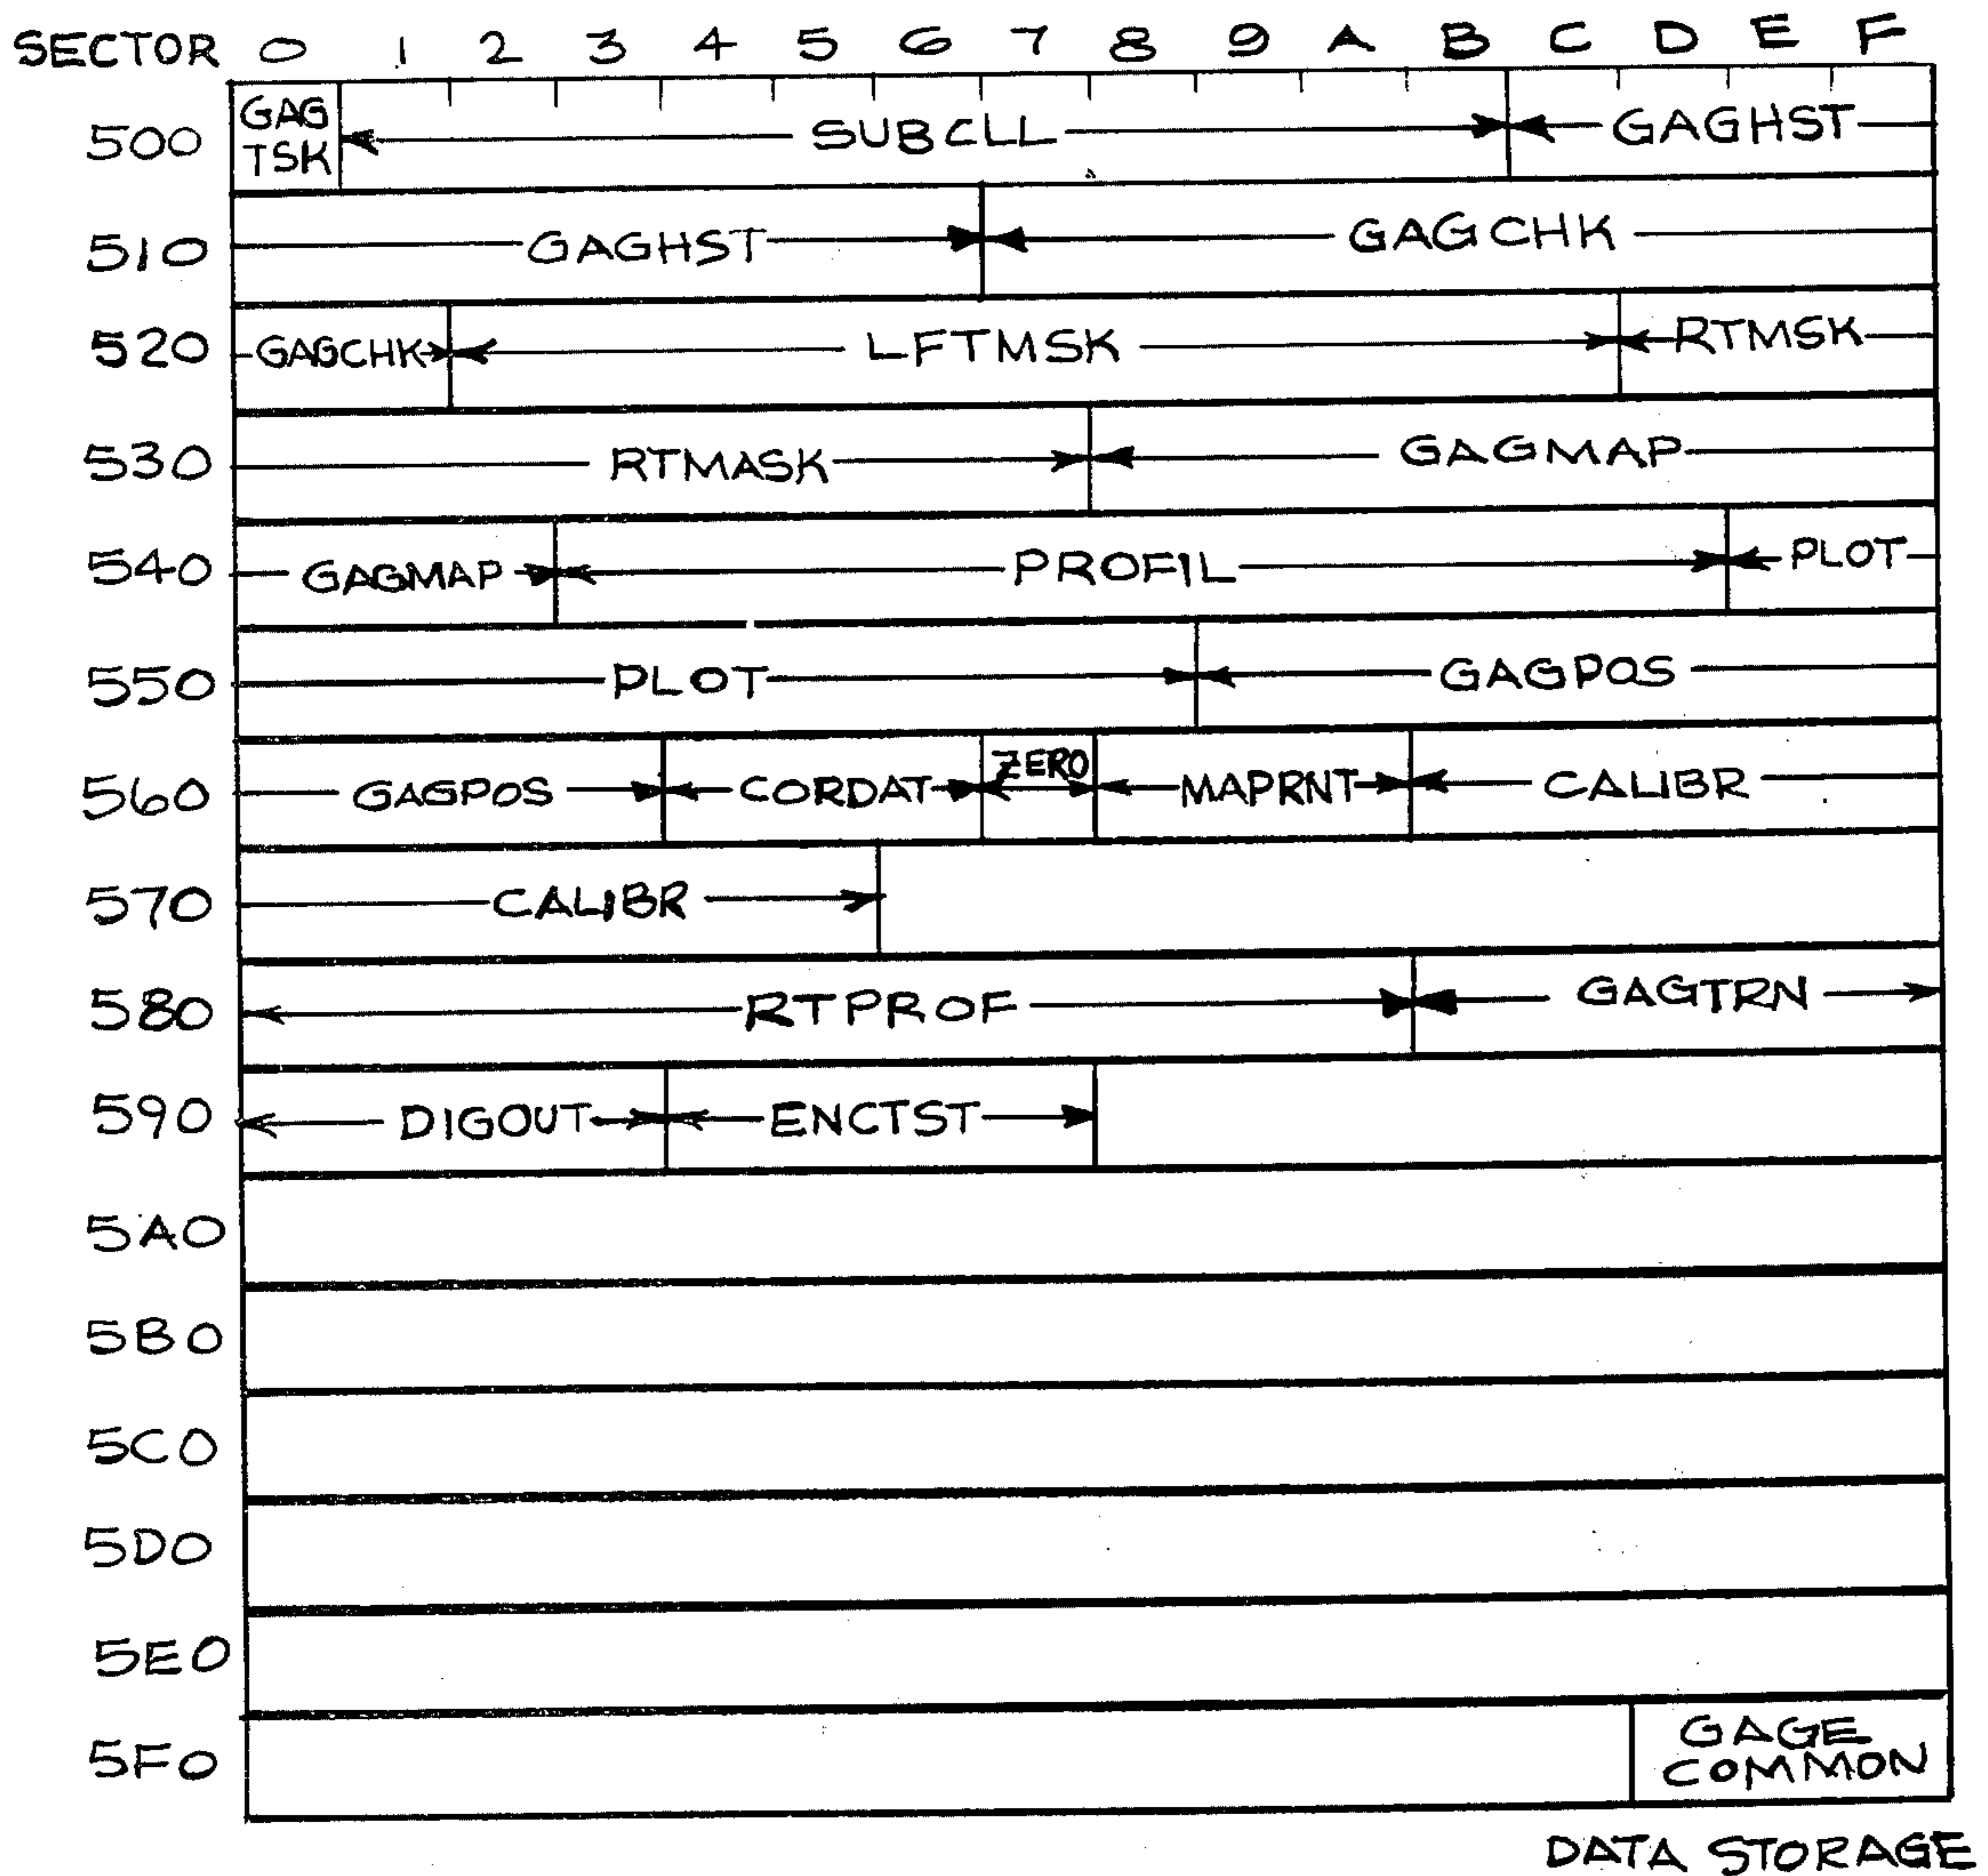 SECTOR 0 1 2 3 4 5 6 7 8 9 A B C D E F
500 GAG TSK SUBCLL GAGHST
510 GAGHST GAGCHK
520 GAGCHK LFTMSK RTMSK
530 RTMASK GAGMAP
540 GAGMAP PROFIL PLOT
550 PLOT GAGPOS
560 GAGPOS CORDAT ZERO MAPRNT CALIBR
570 CALIBR
580 RTPROF GAGTRN
590 DIGOUT ENCTST
5A0
5B0
5C0
5D0
5E0
5F0 GAGE COMMON
DATA STORAGE